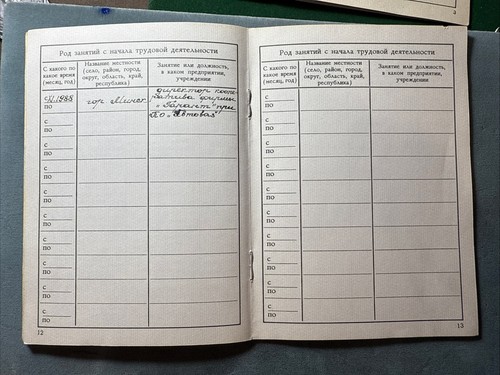 Род занятий с начала трудовой деятельности
С какого по какое время (месяц, год)
Название местности (село, район, город, округ, область, край, республика)
Занятие или должность, в каком предприятии, учреждении
с XI.1988
по
гор. Минск
директор коопе-
ратива фирмы
"Гарант" при
с
по
с
по
с
по
с
по
с
по
с
по
с
по
с
по
с
по
12
Род занятий с начала трудовой деятельности
С какого по какое время (месяц, год)
Название местности (село, район, город, округ, область, край, республика)
Занятие или должность, в каком предприятии, учреждении
с
по
с
по
с
по
с
по
с
по
с
по
с
по
с
по
с
по
с
по
13